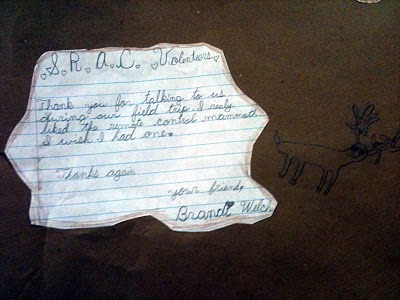 S. R. A. C. Volenteers
Thank you for talking to us
during our field trip. I realy
liked the remote control mammoth
I wish I had one.
Thanks again
your friend,
Brandt Welch